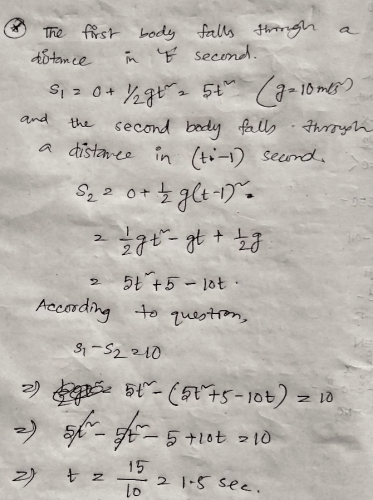 * The first body falls through a
distance in 't' second.
S₁ = 0 + ½gt² = 5t² (g=10m/s²)
and the second body falls through
a distance in (t-1) second.
S₂ = 0 + ½ g(t-1)².
= ½gt² - gt + ½g
= 5t² + 5 - 10t.
According to question,
S₁ - S₂ = 10
=) 5t² - (5t² + 5 - 10t) = 10
=) 5t² - 5t² - 5 + 10t = 10
=) t = 15/10 = 1.5 sec.